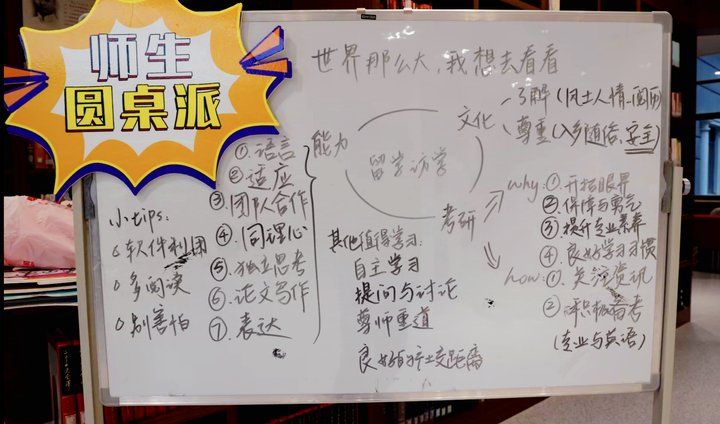 师生
圆桌派
世界那么大,我想去看看
文化
了解(风土人情-阅历)
尊重(入乡随俗,安全)
能力
①.语言
②适应
③团队合作
④.同理心
⑤独立思考
⑥论文写作
⑦.表达
留学访学
考研
why:①.开拓眼界
②.保障与勇气
③提升专业素养
④.良好学习习惯
how:①.关注资讯
②积极备考
(专业与英语)
其他值得学习:
自主学习
提问与讨论
尊师重道
良好的社交距离
小tips:
软件利用
多阅读
别害怕